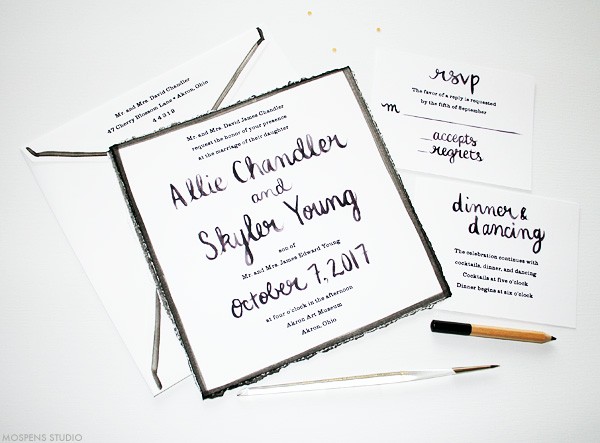 Mr. and Mrs. David Chandler
47 Cherry Blossom Lane • Akron, Ohio
44312
Mr. and Mrs. David James Chandler
request the honor of your presence
at the marriage of their daughter
Allie Chandler
and
Skyler Young
son of
Mr. and Mrs. James Edward Young
October 7, 2017
at four o'clock in the afternoon
Akron Art Museum
Akron, Ohio
rsvp
The favor of a reply is requested
by the fifth of September
m
accepts
regrets
dinner &
dancing
The celebration continues with
cocktails, dinner, and dancing
Cocktails at five o'clock
Dinner begins at six o'clock
MOSPENS STUDIO